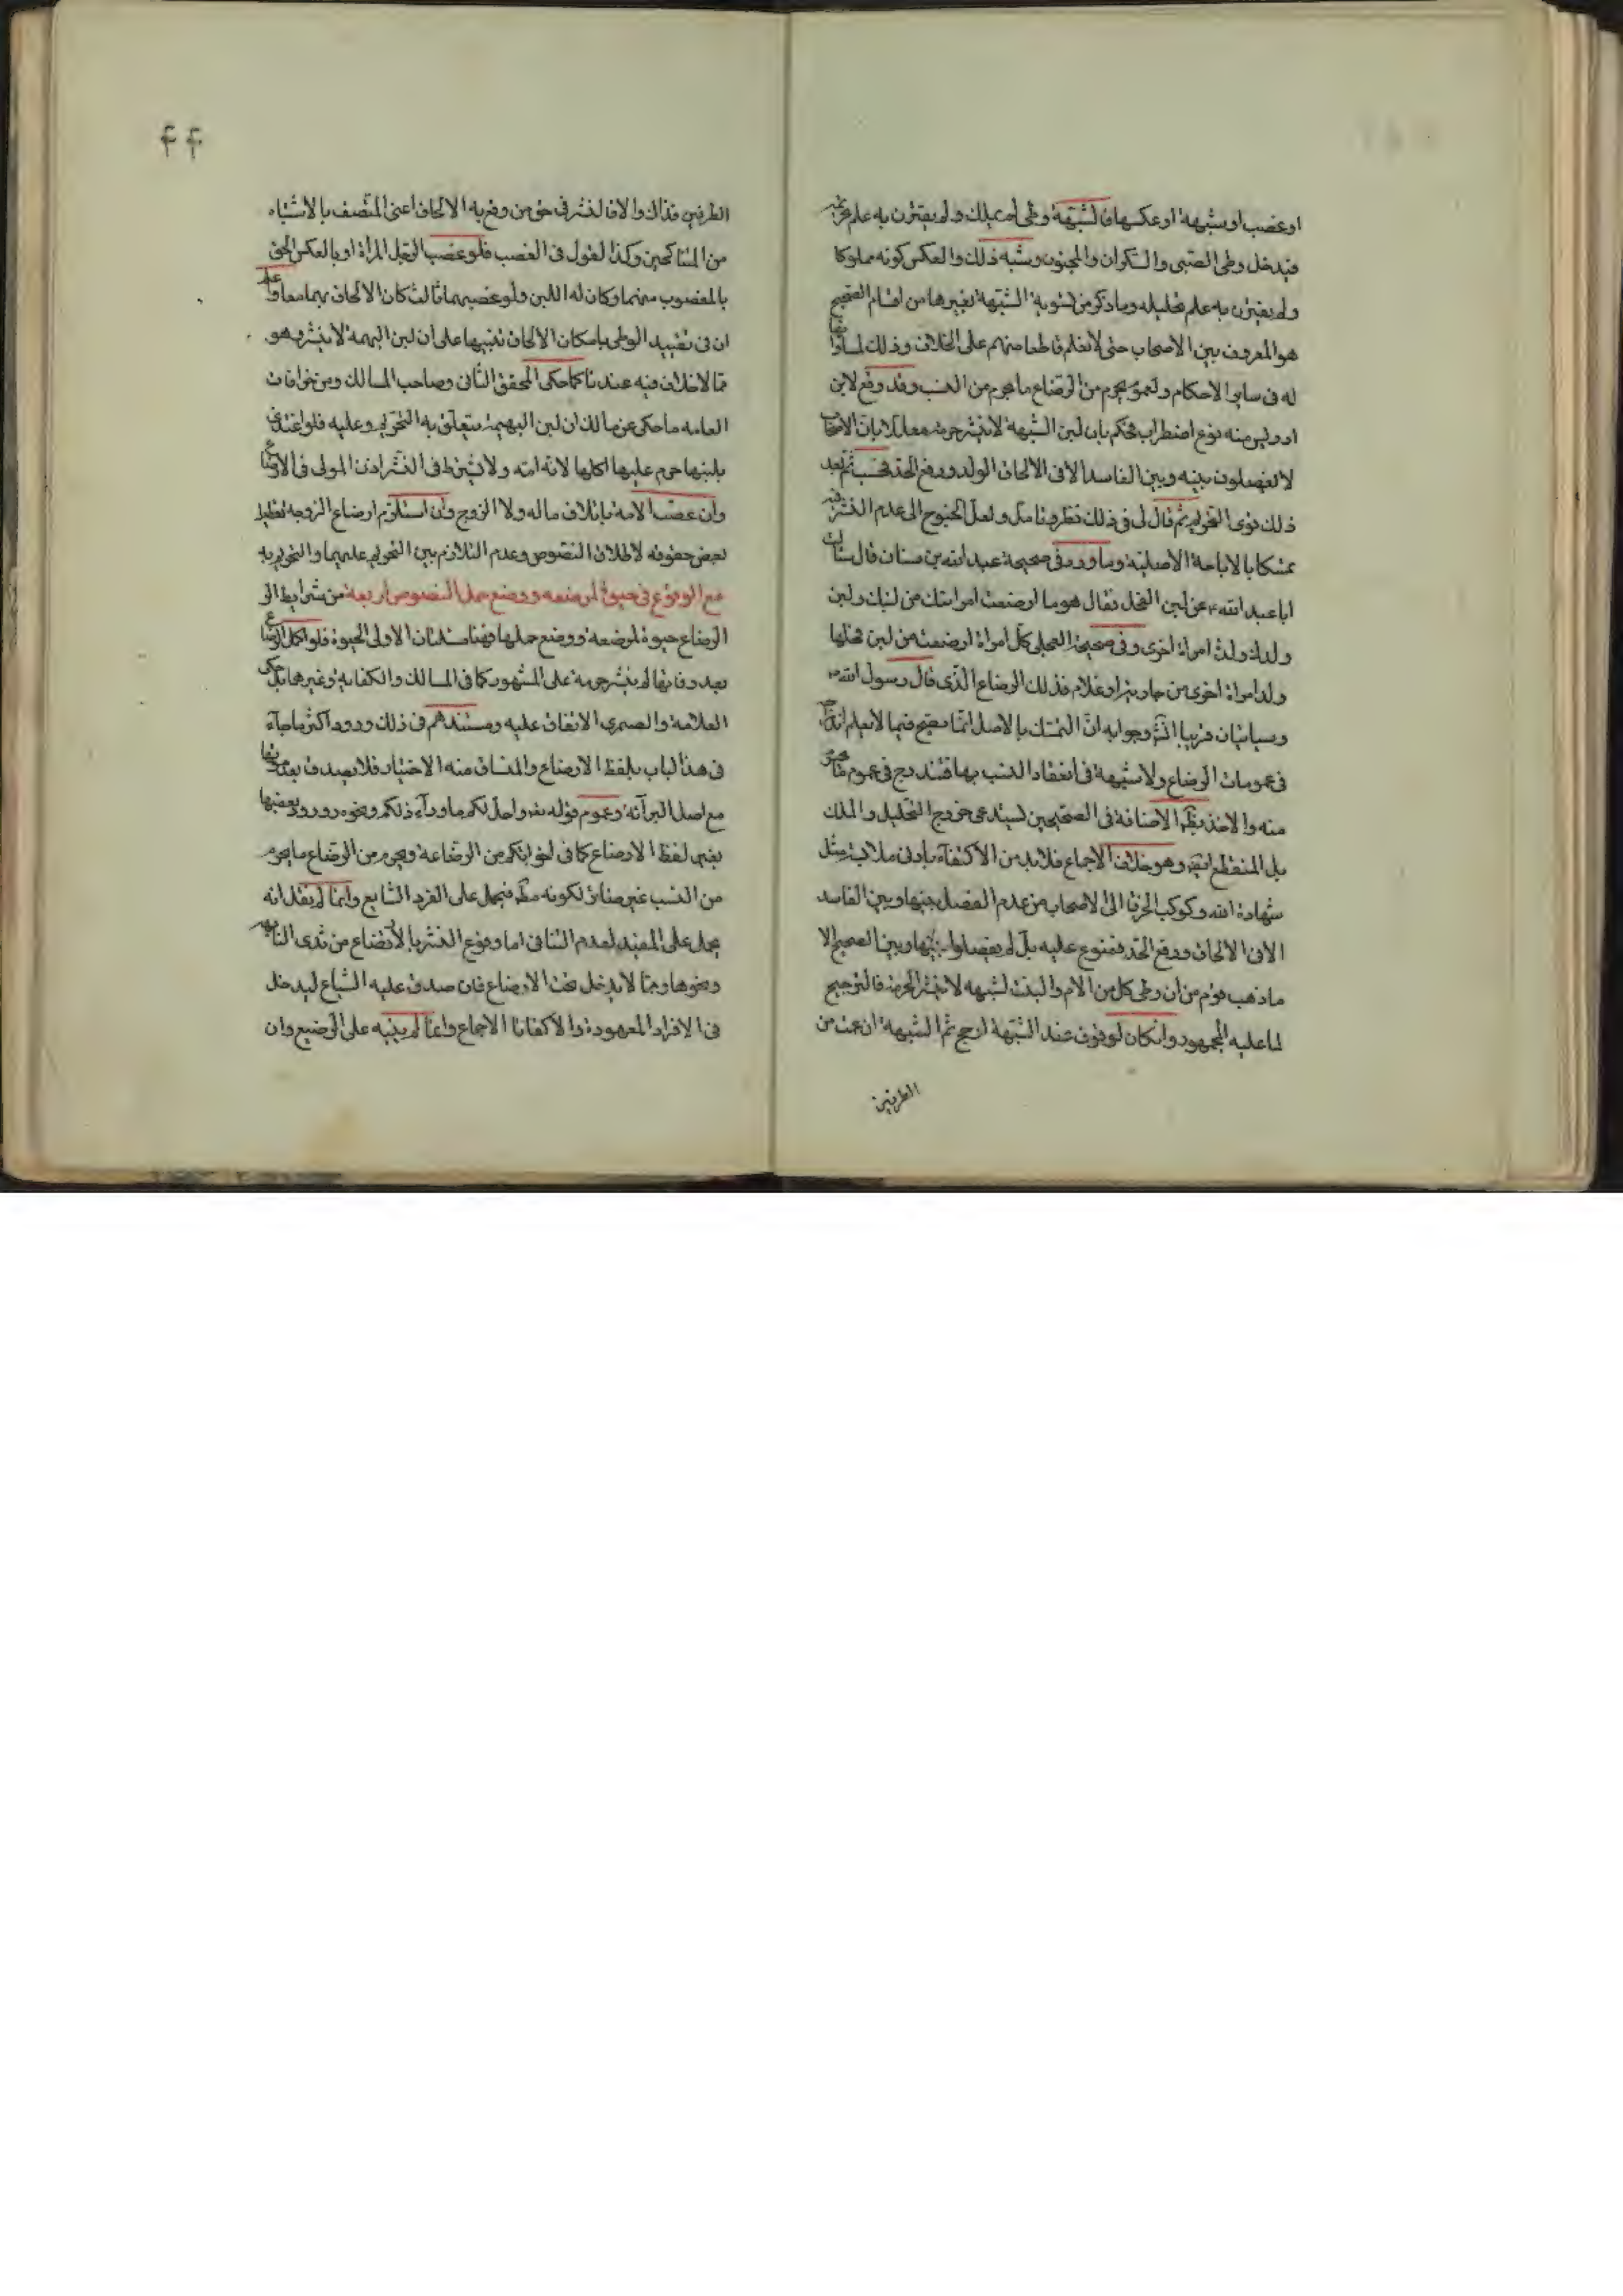 او غصب او شبهة او عكسها فالشبهة وطى لم يملك ولم يقترن به علم
فيدخل وطى الصبى والسكران والمجنون وشبه ذلك والعكس كونه مملوكا
ولم يقترن به علم تحليله وما ذكر من تسوية الشبهة بغيرها من اقسام الصحيح
هو المعروف بين الاصحاب حتى لا نعلم قاطعا منهم على الخلاف وذلك لمساواتها
له فى ساير الاحكام ولعموم يحرم من الرضاع ما يحرم من النسب وقد وقع لابن
ادريس منه نوع اضطراب فحكم بان لبن الشبهة لا ينشر حرمة معللا بان الاصحاب
لا يفصلون بينه وبين الفاسد الا فى الالحاق الولد ورفع الحد فحسب ثم بعد
ذلك قوى التحريم ثم قال لى فى ذلك نظر وتامل ولعل الجنوح الى عدم النشر
تمسكا بالاباحة الاصلية وما ورد فى صحيحة عبد الله بن سنان قال سئلت
ابا عبد الله ع عن لبن الفحل فقال هو ما ارضعت امراتك من لبنك ولبن
ولدك ولد امراة اخرى وفى صحيحة العجلى كل امراة ارضعت من لبن فحلها
ولد امراة اخرى من جارية او غلام فذلك الرضاع الذى قال رسول الله ص
وسياتيان قريبا انش وجوابه ان التمسك بالاصل انما يصح فيما لا نعلم
فى عمومات الرضاع ولا شبهة فى انعقاد النسب بها فتندرج فى عموم
منه والاخذ بظ الاضافة فى الصحيحين يستدعى خروج التحليل والملك
بل المنقطع ايضا وهو خلاف الاجماع فلا بد من الاكتفاء بادنى ملابسة مثل
شهادة الله وكوكب الخرقا الى الاصحاب من عدم الفصل بينها وبين الفاسد
الا فى الالحاق ورفع الحد فممنوع عليه بل لم يفصلوا بينها وبين الصحيح الا
ما ذهب قوم من ان وطى كل من الام والبنت لشبهه لا ينشر الحرمة فالترجيح
لما عليه الجمهور وانكان لوقوف عند الشبهة ارجح ثم الشبهة ان عمت من
الطرفين
۴۴
الطرفين فذاك والا فالنشر فى حق من وقع به الالحاق اعنى المتصف بالاشتباه
من المتناكحين وكذا لقول فى الغصب فلو غصب الرجل المراة او بالعكس الحق
بالمغصوب منهما وكان له اللبن ولو غصبهما ثالث كان الالحاق بهما معا واعلم
ان فى تقييد الوطى بامكان الالحاق تنبيها على ان لبن البهمة لا ينشر وهو
مما لا خلاف فيه عندنا كما حكى المحقق الثانى وصاحب المسالك ومن خرافات
العامه ما حكى عن مالك ان لبن البهيمة يتعلق به التحريم وعليه فلو اغتذى
بلبنها حرم عليها اكلها لانه امه ولا يشترط فى النشر اذن المولى فى الارضاع
وان غصب الامة باتلاف ماله ولا الزوج وان استلزم ارضاع الزوجه تعطيل
بعض حقوقه لاطلاق النصوص وعدم التلازم بين التحريم عليهما والتحريم به
مع الوقوع فى حيوة المرضعه ووضع حمل النصوص اربعة من شرايط الر
الرضاع حيوة المرضعه ووضع حملها فهنا مسئلتان الاولى الحيوة فلو اكمل الرضاع
بعد وفاتها لم ينشر حرمة على المشهور كما فى المسالك والكفاية وغيرهما بل حكى
العلامة والصيمرى الاتفاق عليه ومستندهم فى ذلك ورود اكثر ما جاء
فى هذا لباب بلفظ الارضاع والمنساق منه الاختيار فلا يصدق بعد موتها
مع اصل البرآئة وعموم قوله تعه واحل لكم ما ورآء ذلكم ونحوه وورود بعضها
بغير لفظ الارضاع كما فى اخواتكم من الرضاعة ويحرم من الرضاع ما يحرم
من النسب غير مناف لكونه مظ فيحمل على الفرد الشايع وانما لم يقل انه
يحمل على المقيد لعدم التنافى اما وقوع النشر بالارتضاع من ثدى النايمه
ونحوها ومما لا يدخل تحت الارضاع فان صدق عليه الشياع ليدخل
فى الافراد المعهودة والا كفانا الاجماع وانما لم ينبه على الرضيع وان